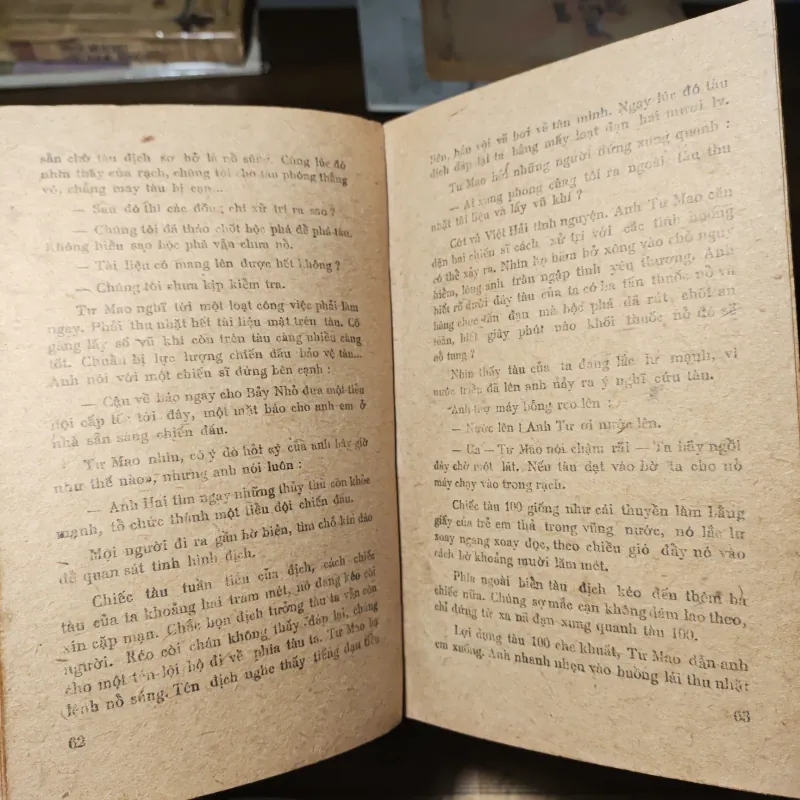 sẵn chờ tàu địch sơ hở là nổ súng. Cùng lúc đó
nhìn thấy cửa rạch, chúng tôi cho tàu phóng thẳng
vô, chẳng may tàu bị cạn...
— Sau đó thì các đồng chí xử trí ra sao ?
— Chúng tôi đã tháo chốt bộc phá để phá tàu.
Không hiểu sao bộc phá vẫn chưa nổ.
— Tài liệu có mang lên được hết không ?
— Chúng tôi chưa kịp kiểm tra.
Tư Mao nghĩ tới một loạt công việc phải làm
ngay. Phải thu nhặt hết tài liệu mật trên tàu. Cố
gắng lấy số vũ khí còn trên tàu càng nhiều càng
tốt. Chuẩn bị lực lượng chiến đấu bảo vệ tàu...
Anh nói với một chiến sĩ đứng bên cạnh :
— Cậu về bảo ngay cho Bảy Nhỏ đưa một tiểu
đội cấp tốc tới đây, một mặt bảo cho anh em ở
nhà sẵn sàng chiến đấu.
Tư Mao nhìn, có ý dò hỏi «ý của anh bây giờ
như thế nào», nhưng anh nói luôn :
— Anh Hai tìm ngay những thủy thủ còn khỏe
mạnh, tổ chức thành một tiểu đội chiến đấu.
Mọi người đi ra gần bờ biển, tìm chỗ kín đáo
để quan sát tình hình địch.
Chiếc tàu tuần tiễu của địch, cách chiếc
tàu của ta khoảng hai trăm mét, nó đang kéo còi
xin cặp mạn. Chắc bọn địch tưởng tàu ta vẫn còn
người. Kéo còi chán không thấy đáp lại, chúng
cho một tên lội bộ đi về phía tàu ta. Tư Mao hạ
lệnh nổ súng. Tên địch nghe thấy tiếng đạn tiểu
62
liên, hấp vội vã bơi về tàu mình. Ngay lúc đó tàu
địch đáp lại ta bằng mấy loạt đạn hai mươi ly.
Tư Mao hỏi những người đứng xung quanh :
— Ai xung phong cùng tôi ra ngoài tàu thu
nhặt tài liệu và lấy vũ khí ?
Cót và Việt Hải tình nguyện. Anh Tư Mao căn
dặn hai chiến sĩ cách xử trí với các tình huống
có thể xảy ra. Nhìn họ hăm hở xông vào chỗ nguy
hiểm, lòng anh tràn ngập tình yêu thương. Anh
biết rõ dưới đáy tàu của ta có ba tấn thuốc nổ và
hàng chục tấn đạn mà bộc phá đã rút chốt an
toàn, biết giây phút nào khối thuốc nổ đó sẽ
nổ tung ?
Nhìn thấy tàu của ta đang lắc lư mạnh, vì
nước triều đã lên anh nảy ra ý nghĩ cứu tàu.
Anh thợ máy bỗng reo lên :
— Nước lên ! Anh Tư ơi nước lên.
— Ừa — Tư Mao nói chậm rãi — Ta hãy ngồi
đây chờ một lát. Nếu tàu dạt vào bờ ta cho nổ
máy chạy vào trong rạch.
Chiếc tàu 100 giống như cái thuyền làm bằng
giấy của trẻ em thả trong vũng nước, nó lắc lư
xoay ngang xoay dọc, theo chiều gió đẩy nó vào
cách bờ khoảng mười lăm mét.
Phía ngoài biển tàu địch kéo đến thêm ba
chiếc nữa. Chúng sợ mắc cạn không dám lao theo,
chỉ đứng từ xa nã đạn xung quanh tàu 100.
Lợi dụng tàu 100 che khuất, Tư Mao dẫn anh
em xuống. Anh nhanh nhẹn vào buồng lái thu nhặt
63